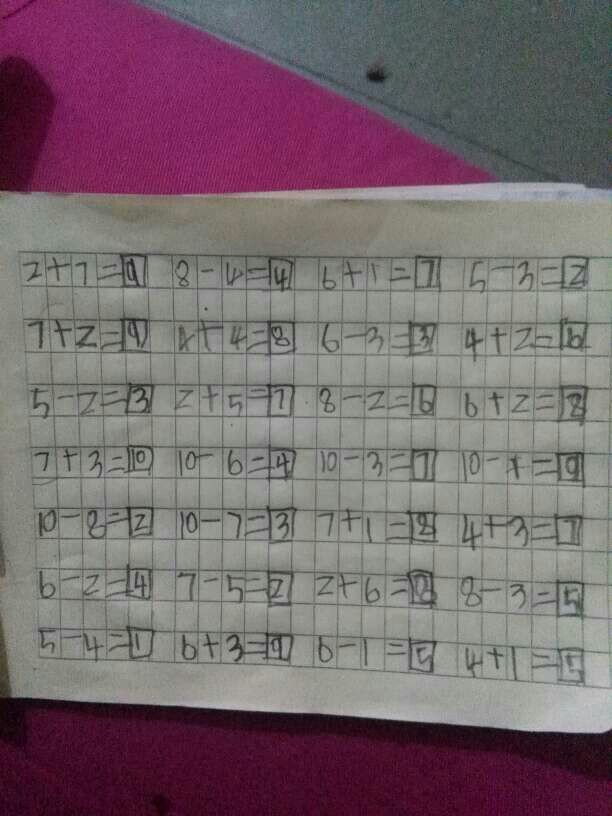 2+7=9 8-4=4 6+1=7 5-3=2
7+2=9 4+4=8 6-3=3 4+2=6
5-2=3 2+5=7 8-2=6 6+2=8
7+3=10 10-6=4 10-3=7 10-1=9
10-8=2 10-7=3 7+1=8 4+3=7
6-2=4 7-5=2 2+6=8 8-3=5
5-4=1 6+3=9 6-1=5 4+1=5